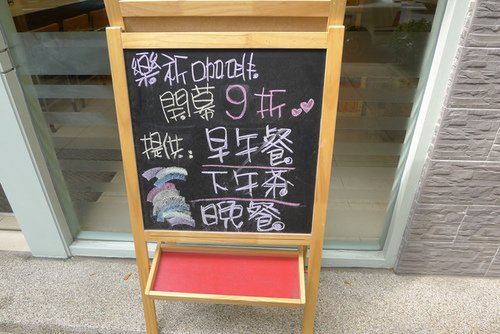 樂祈咖啡
開幕9折
提供: 早午餐
下午茶
晚餐